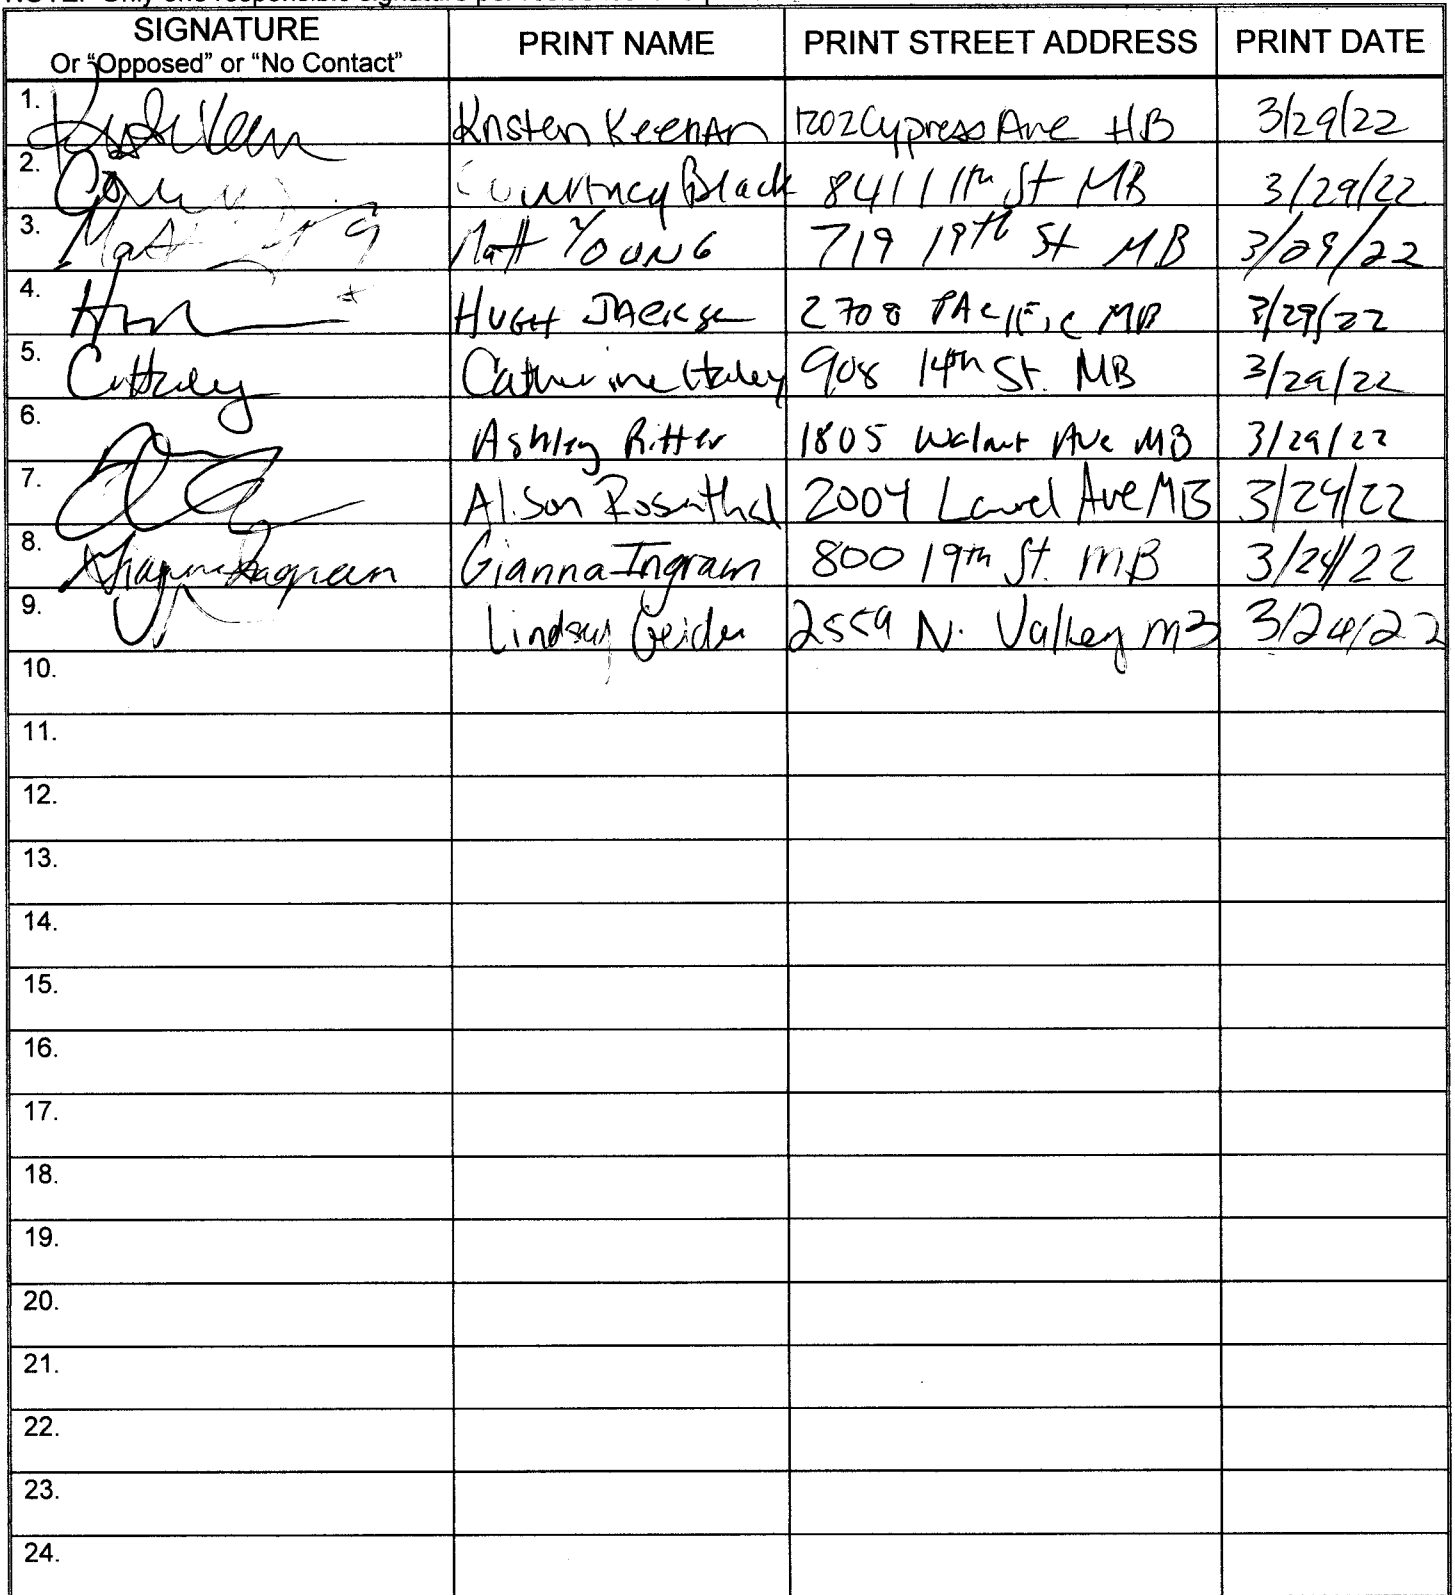 SIGNATURE PRINT NAME PRINT STREET ADDRESS PRINT DATE
Or "Opposed" or "No Contact"
1. Kristen Keenan 1202 Cypress Ave HB 3/29/22
2. Courtney Black 841 11th St MB 3/29/22
3. Matt YOUNG 719 19th St MB 3/29/22
4. HUGH JACKSON 2708 PACIFIC MB 3/29/22
5. Catherine Haley 908 14th St. MB 3/29/22
6. Ashley Ritter 1805 Walnut Ave MB 3/29/22
7. Alison Rosenthal 2004 Laurel Ave MB 3/29/22
8. Gianna Ingram 800 19th St. MB 3/29/22
9. Lindsay 2559 N. Valley MB 3/29/22
10.
11.
12.
13.
14.
15.
16.
17.
18.
19.
20.
21.
22.
23.
24.